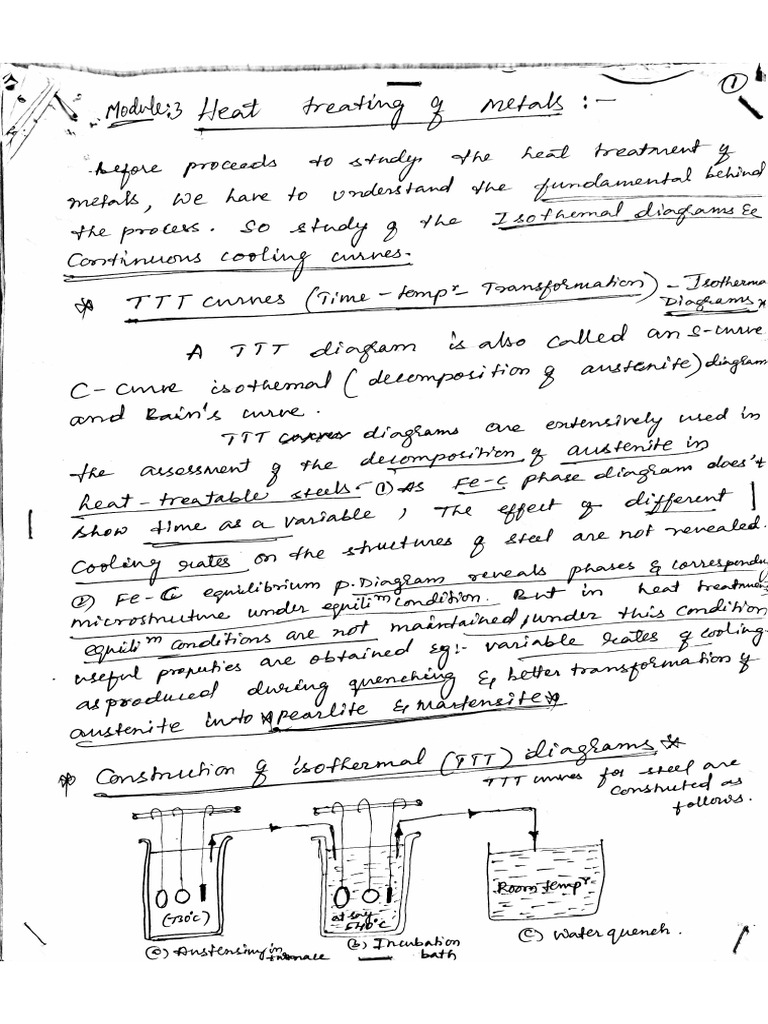 1
Module:3 Heat treating of metals :-
Before proceeds to study the heat treatment of
metals, we have to understand the fundamental behind
the process. So study of the Isothemal diagrams &
Continuous cooling curves.
* TTT curves (Time - tempr - Transformation) - Isotherma
Diagrams *
A TTT diagram is also called an S-curve
C-curve isothemal (decomposition of austenite) diagram
and Bain's curve.
TTT diagrams are extensively used in
the assessment of the decomposition of austenite in
heat-treatable steels. ① As Fe-C phase diagram does't
show time as a variable, The effect of different
cooling rates on the structures of steel are not revealed.
② Fe-C equilibrium p. Diagram reveals phases & correspondu
microstructure under equilim condition. But in heat treatment
equilim conditions are not maintained, under this condition
useful properties are obtained eg:- variable rates of cooling
as produced during quenching & better transformation of
austenite into *pearlite & martensite*
* Construction of isothermal (TTT) diagrams *
TTT curves for steel are
constructed as
follows.
(730°C)
at say
540°C
Room tempr
(a) Austensing in
furnace
(b) Incubation
bath
(c) Water quench.